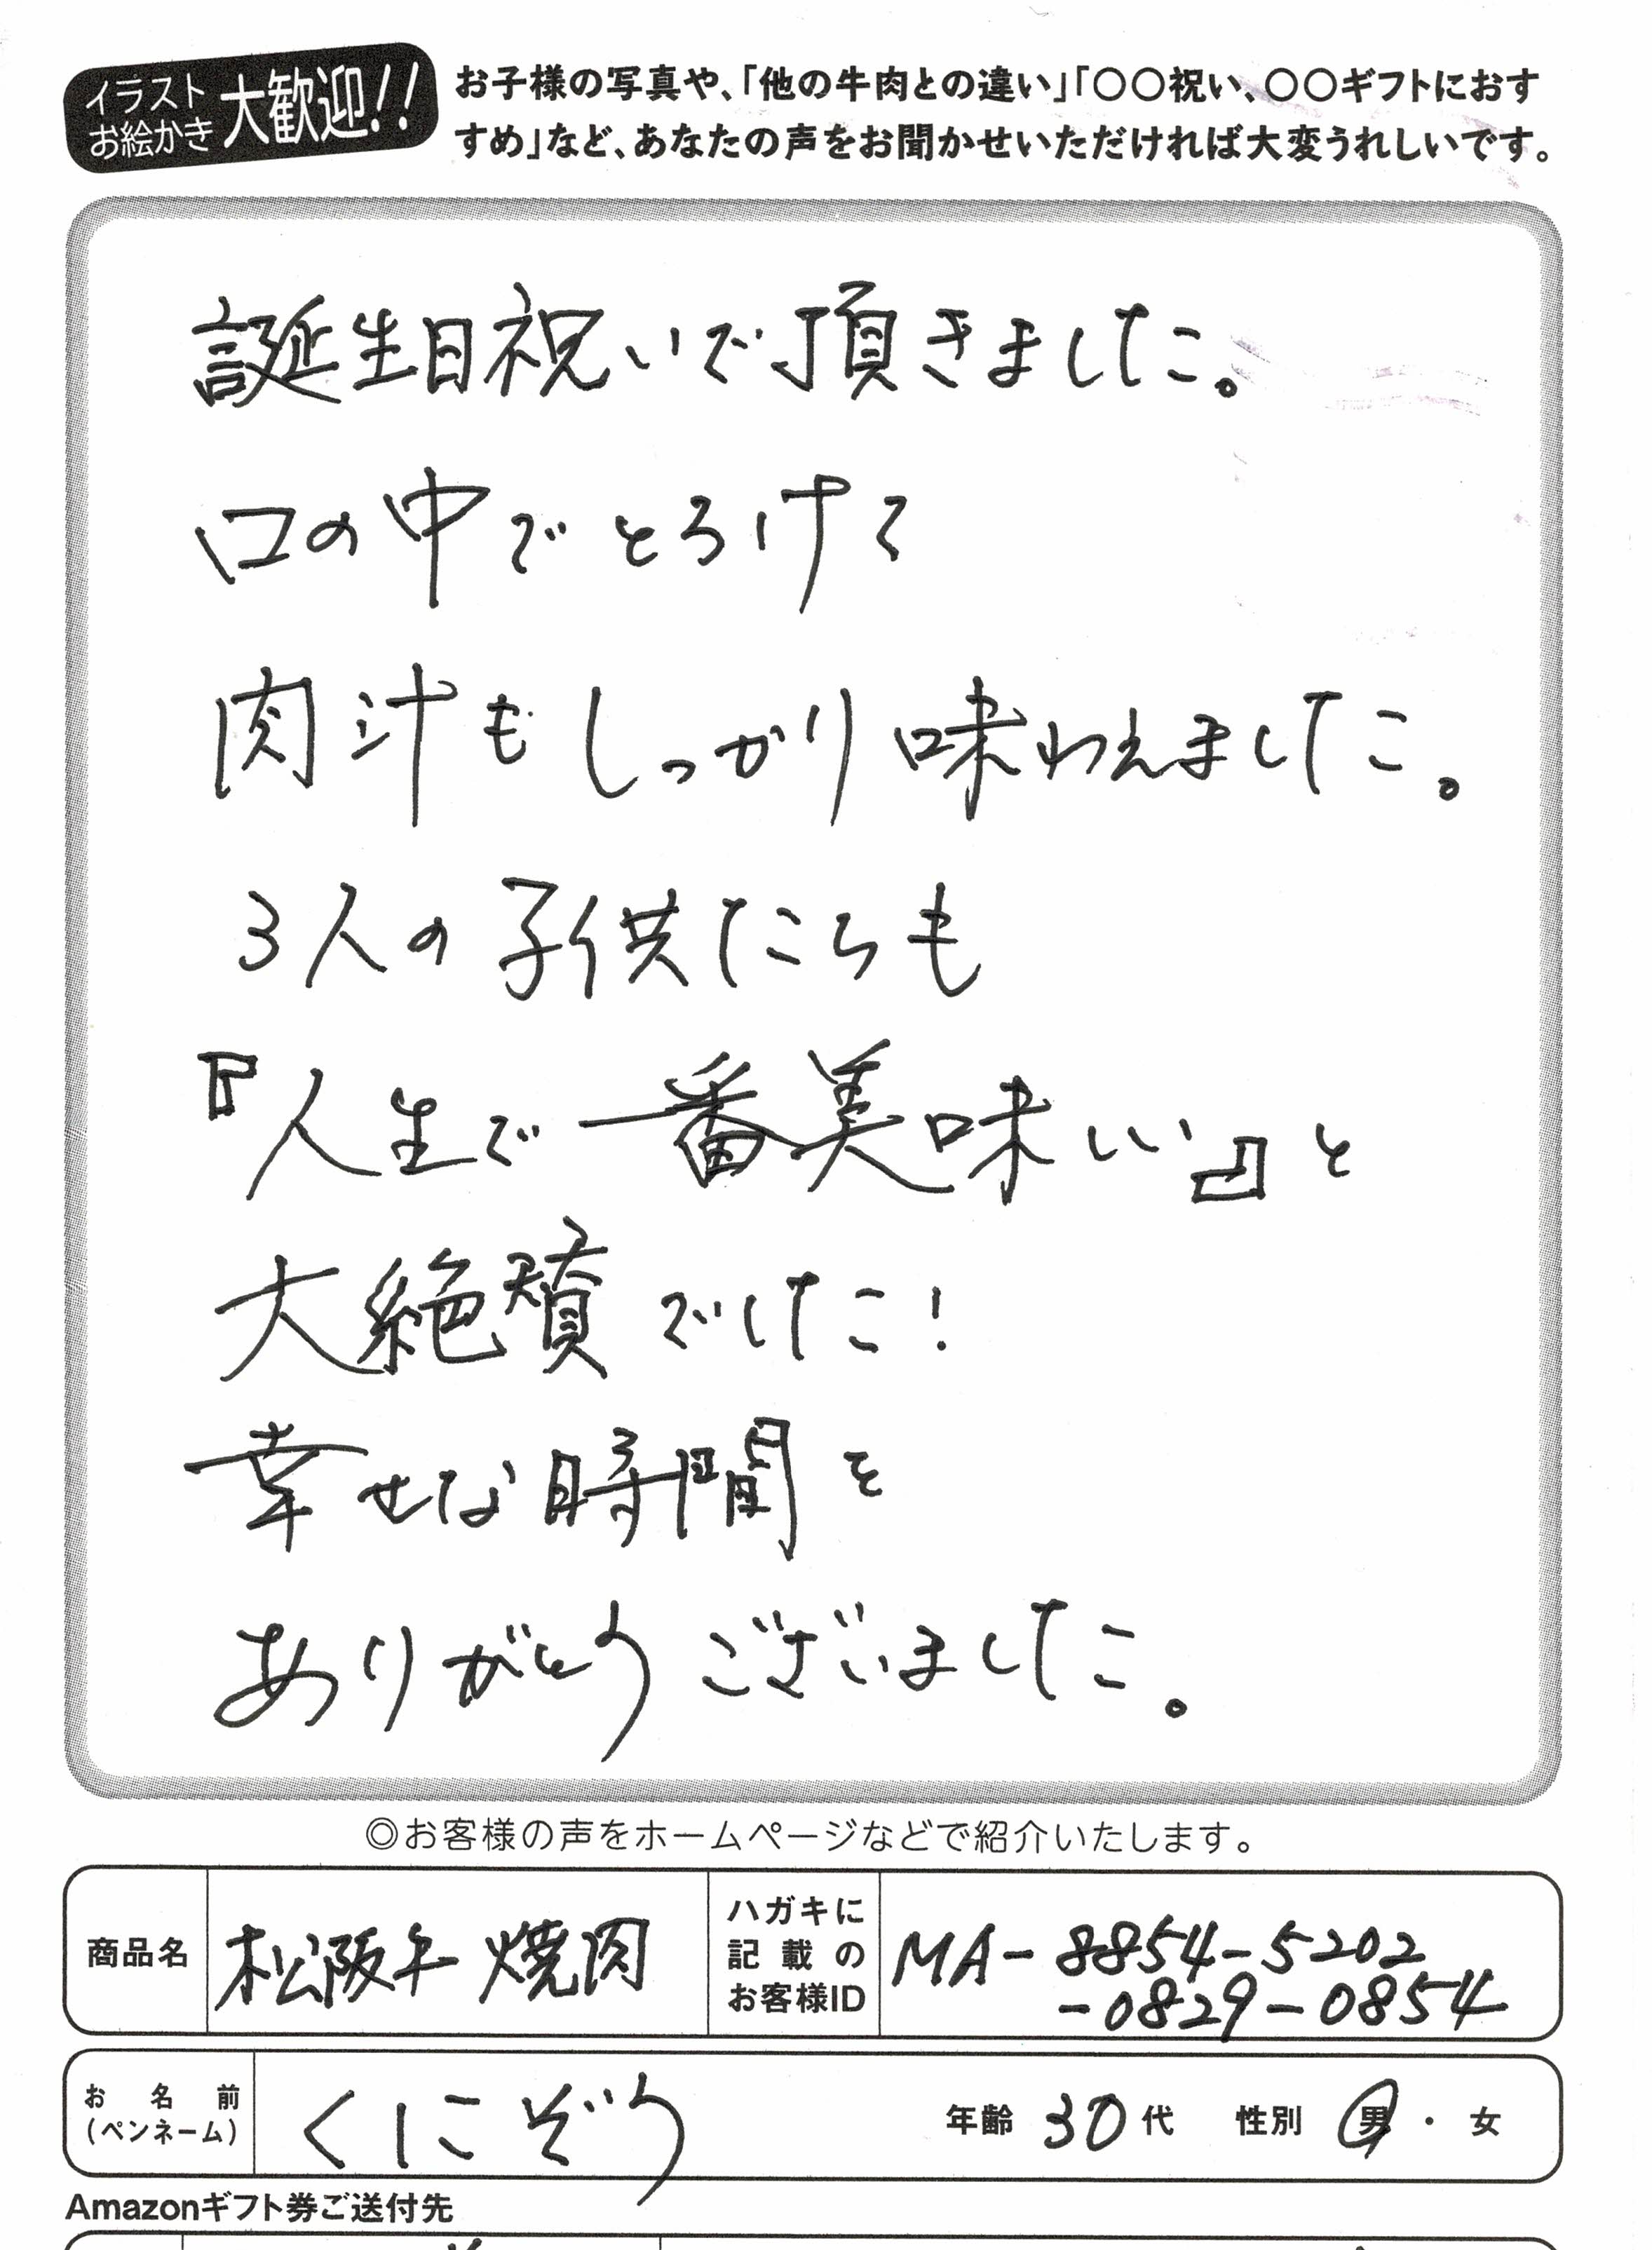 イラスト
お絵かき
大歓迎!!
お子様の写真や、「他の牛肉との違い」「〇〇祝い、〇〇ギフトにおす
すめ」など、あなたの声をお聞かせいただければ大変うれしいです。
誕生日祝いで頂きました。
口の中でとろけて
肉汁もしっかり味わえました。
3人の子供たちも
『人生で一番美味しい』と
大絶賛でした!
幸せな時間を
ありがとうございました。
◎お客様の声をホームページなどで紹介いたします。
商品名 松阪牛 焼肉
ハガキに
記載の
お客様ID
MA-8854-5202
-0829-0854
お名前
(ペンネーム)
くにぞう 年齢 30代 性別 男・女
Amazonギフト券ご送付先